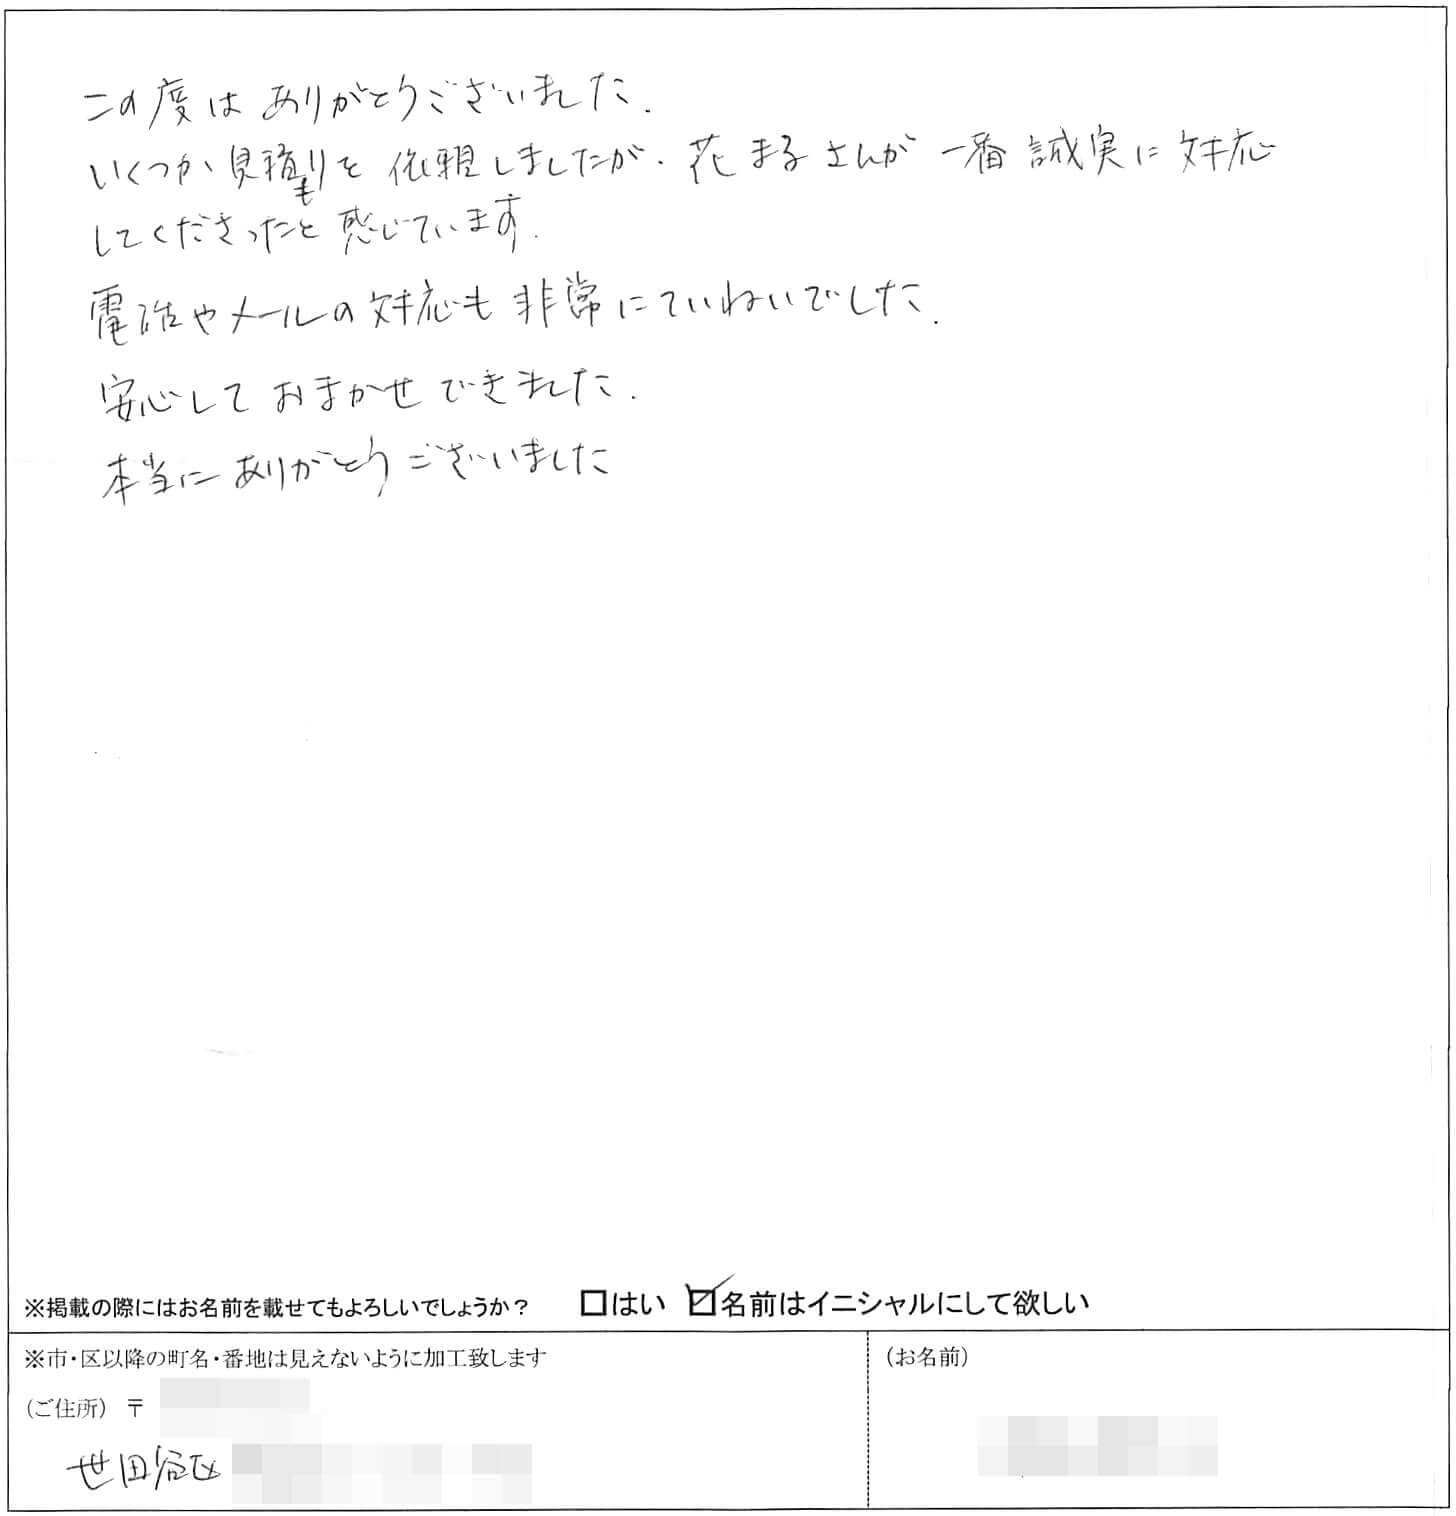 この度は ありがとうございました.
いくつか見積もりを依頼しましたが、花まるさんが一番誠実に対応
してくださったと感じています.
電話やメールの対応も非常にていねいでした.
安心しておまかせできました.
本当にありがとうございました
※掲載の際にはお名前を載せてもよろしいでしょうか？ □はい ☑名前はイニシャルにして欲しい
※市・区以降の町名・番地は見えないように加工致します
(ご住所) 〒
世田谷区
(お名前)